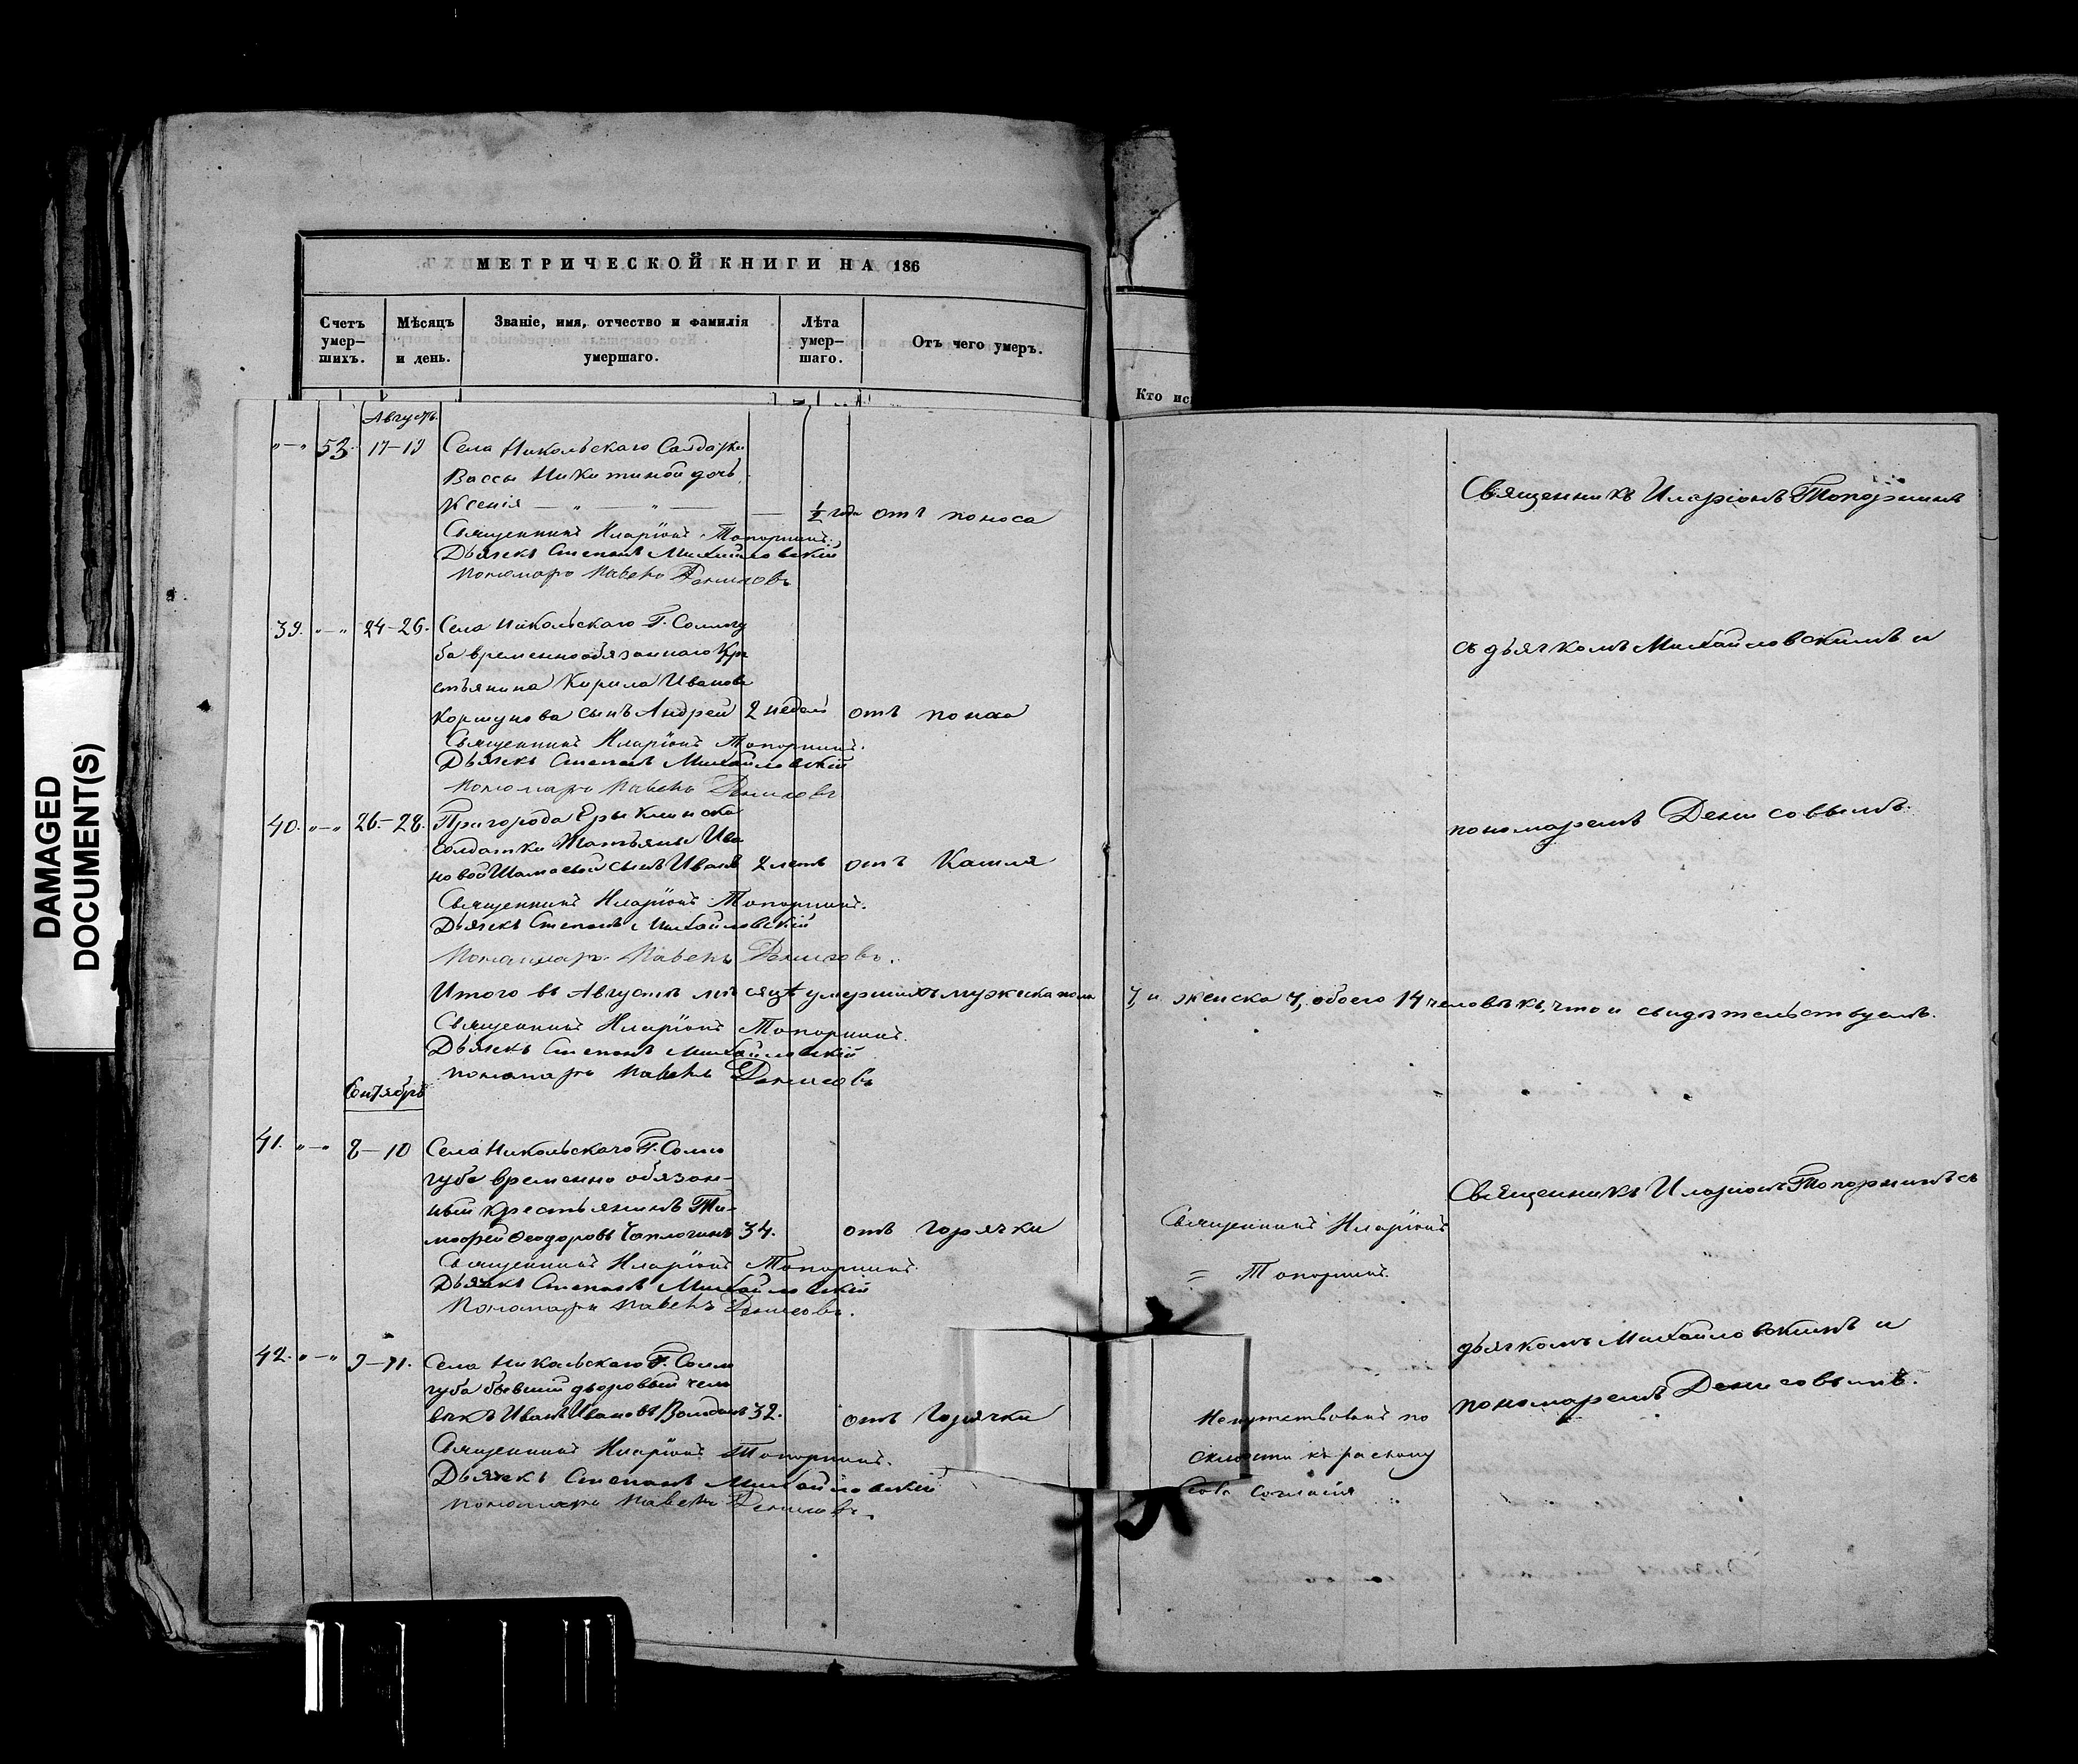 МЕТРИЧЕСКОЙ КНИГИ НА 186
Счетъ умер-шихъ.
Мѣсяцъ и день.
Званіе, имя, отчество и фамилія умершаго.
Лѣта умер-шаго.
Отъ чего умеръ.
Кто ис
DAMAGED
DOCUMENT(S)
Августъ.
"—" 53. 17–19 Села Никольскаго Солдатки
Вассы Никитиной дочь
Ксенія — " — " — — ½ года отъ поноса
Священникъ Иларіонъ Топорнинъ.
Дьячекъ Степанъ Михайловскій
Пономарь Павелъ Денисовъ
Священникъ Иларіонъ Топорнинъ
39. "—" 24–26. Села Никольскаго Г. Соллогу
ба временнообязаннаго Кре
стьянина Кирила Иванова
Коршунова сынъ Андрей 2 недель отъ поноса
Священникъ Иларіонъ Топорнинъ.
Дьячекъ Степанъ Михайловскій
Пономарь Павелъ Денисовъ
съ дьячкомъ Михайловскимъ и
40. "—" 26–28. Пригорода Ерыклинска
Солдатки Татьяны Ива
новой сынъ Иванъ 2 летъ отъ Кашля
Священникъ Иларіонъ Топорнинъ.
Дьячекъ Степанъ Михайловскій
Пономарь Павелъ Денисовъ.
пономаремъ Денисовымъ.
Итого въ Августѣ месяцѣ умершихъ мужеска пола 7, и женска 7, обоего 14 человѣкъ, что и свидѣтельствуемъ.
Священникъ Иларіонъ Топорнинъ.
Дьячекъ Степанъ Михайловскій
Пономарь Павелъ Денисовъ
Сентябрь
41. "—" 8–10 Села Никольскаго Г. Солло
губа временно обязан-
ный крестьянинъ Ти-
мофей Феодоровъ 34. отъ горячки
Священникъ Иларіонъ Топорнинъ.
Дьячекъ Степанъ Михайловскій
Пономарь Павелъ Денисовъ.
Священникъ Иларіонъ
= Топорнинъ.
Священникъ Иларіонъ Топорнинъ съ
42. "—" 9–11. Села Никольскаго Г. Солло
губа бывший дворовый чело
векъ Иванъ Ивановъ 32. отъ Горячки
Священникъ Иларіонъ Топорнинъ.
Дьячекъ Степанъ Михайловскій
Пономарь Павелъ Денисовъ.
по
къ расколу
согласія
дьячкомъ Михайловскимъ и
пономаремъ Денисовымъ.